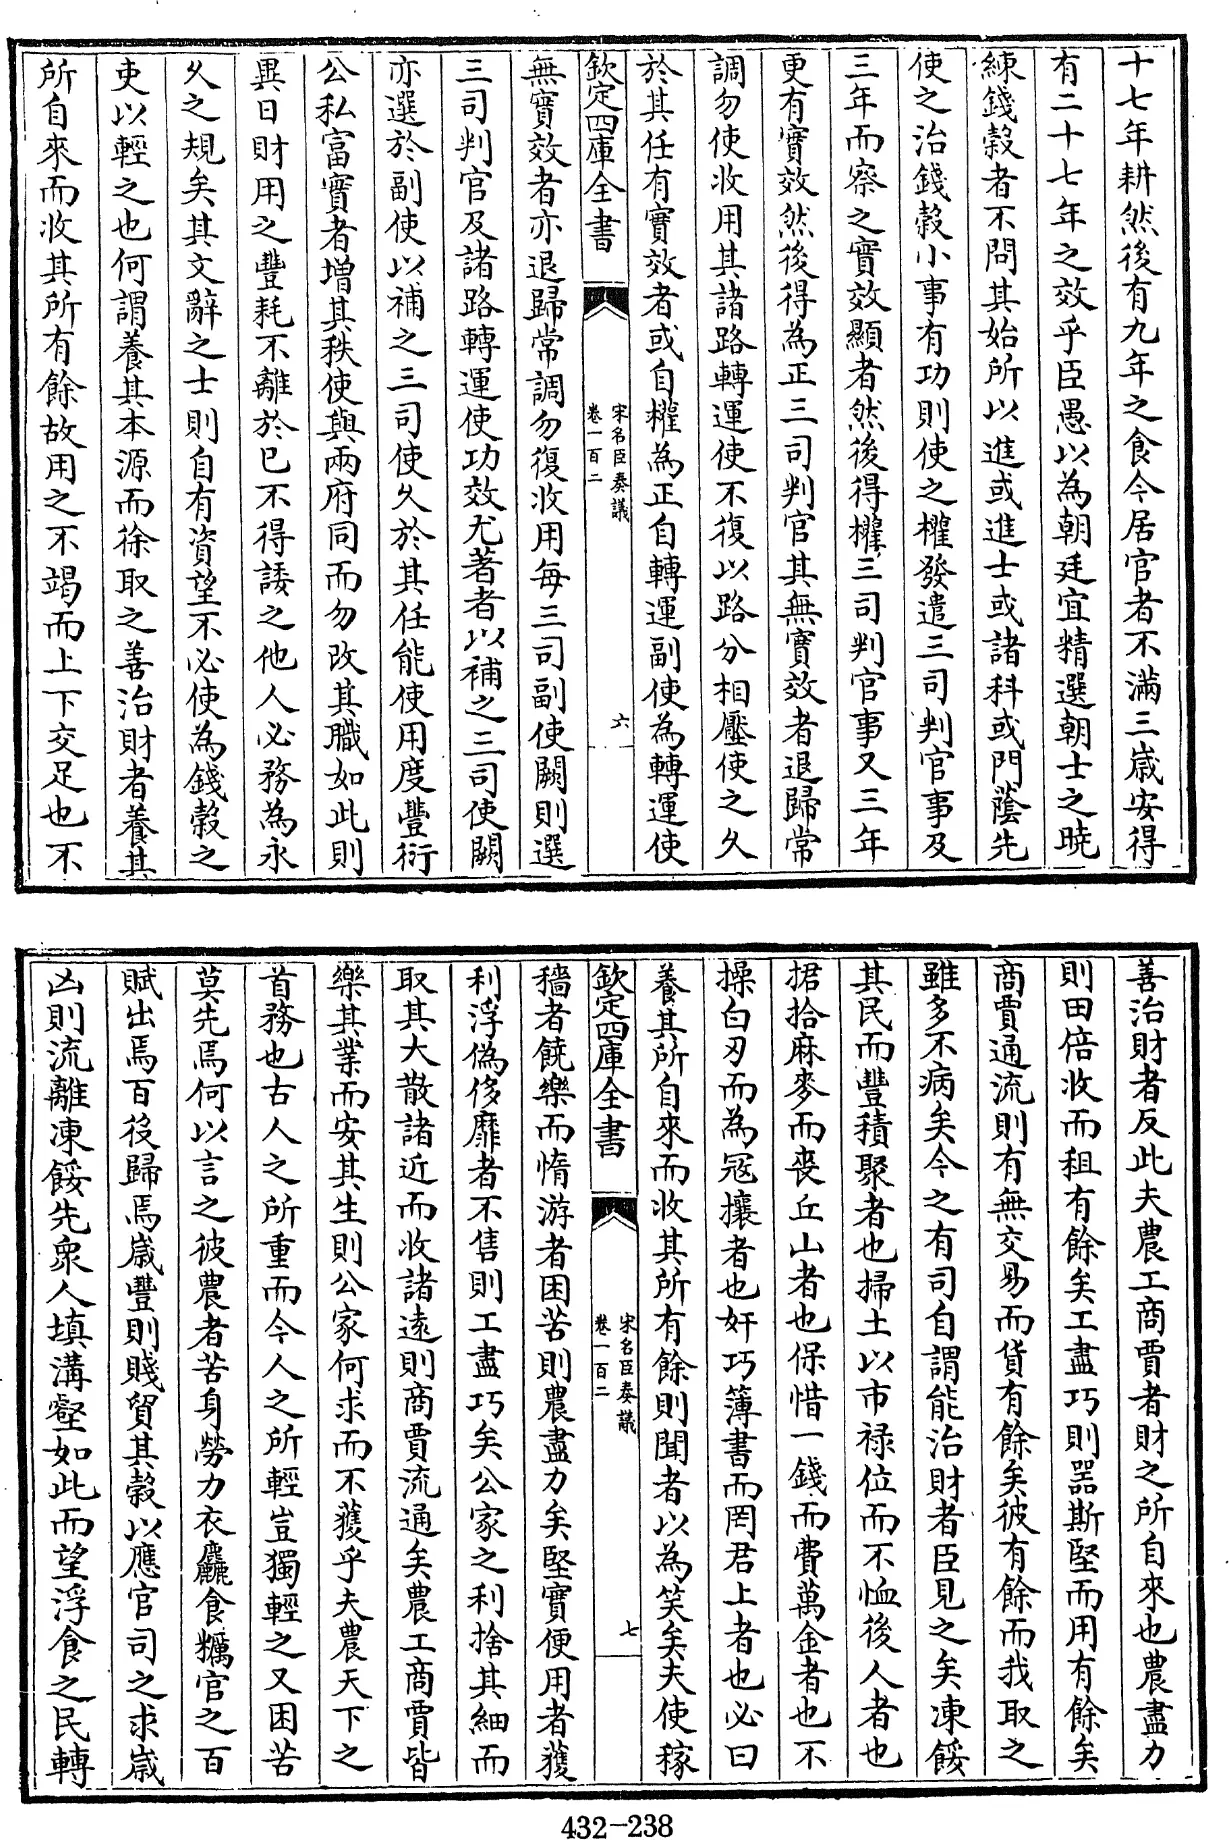 十七年耕然後有九年之食今居官者不滿三歳安得
有二十七年之效乎臣愚以為朝廷宜精選朝士之曉
練錢穀者不問其始所以進或進士或諸科或門蔭先
使之治錢穀小事有功則使之權發遣三司判官事及
三年而察之實效顯者然後得權三司判官事又三年
更有實效然後得為正三司判官其無實效者退歸常
調勿使收用其諸路轉運使不復以路分相壓使之久
於其任有實效者或自權為正自轉運副使為轉運使
欽定四庫全書
宋名臣奏議
卷一百二
六
無實效者亦退歸常調勿復收用每三司副使闕則選
三司判官及諸路轉運使功效尤著者以補之三司使闕
亦選於副使以補之三司使久於其任能使用度豐衍
公私富實者增其秩使與兩府同而勿改其職如此則
異日財用之豐耗不離於已不得諉之他人必務為永
久之規矣其文辭之士則自有資望不必使為錢穀之
吏以輕之也何謂養其本源而徐取之善治財者養其
所自來而收其所有餘故用之不竭而上下交足也不
善治財者反此夫農工商賈者財之所自來也農盡力
則田倍收而租有餘矣工盡巧則器斯堅而用有餘矣
商賈通流則有無交易而貨有餘矣彼有餘而我取之
雖多不病矣今之有司自謂能治財者臣見之矣凍餒
其民而豐積聚者也掃土以市禄位而不恤後人者也
捃拾麻麥而喪丘山者也保惜一錢而費萬金者也不
操白刃而為冦攘者也奸巧簿書而罔君上者也必曰
養其所自來而收其所有餘則聞者以為笑矣夫使稼
欽定四庫全書
宋名臣奏議
卷一百二
七
穡者饒樂而惰游者困苦則農盡力矣堅實便用者獲
利浮偽侈靡者不售則工盡巧矣公家之利捨其細而
取其大散諸近而收諸遠則商賈流通矣農工商賈皆
樂其業而安其生則公家何求而不獲乎夫農天下之
首務也古人之所重而今人之所輕豈獨輕之又困苦
莫先焉何以言之彼農者苦身勞力衣麤食糲官之百
賦出焉百役歸焉歳豐則賤貿其穀以應官司之求歳
凶則流離凍餒先衆人填溝壑如此而望浮食之民轉
432-238